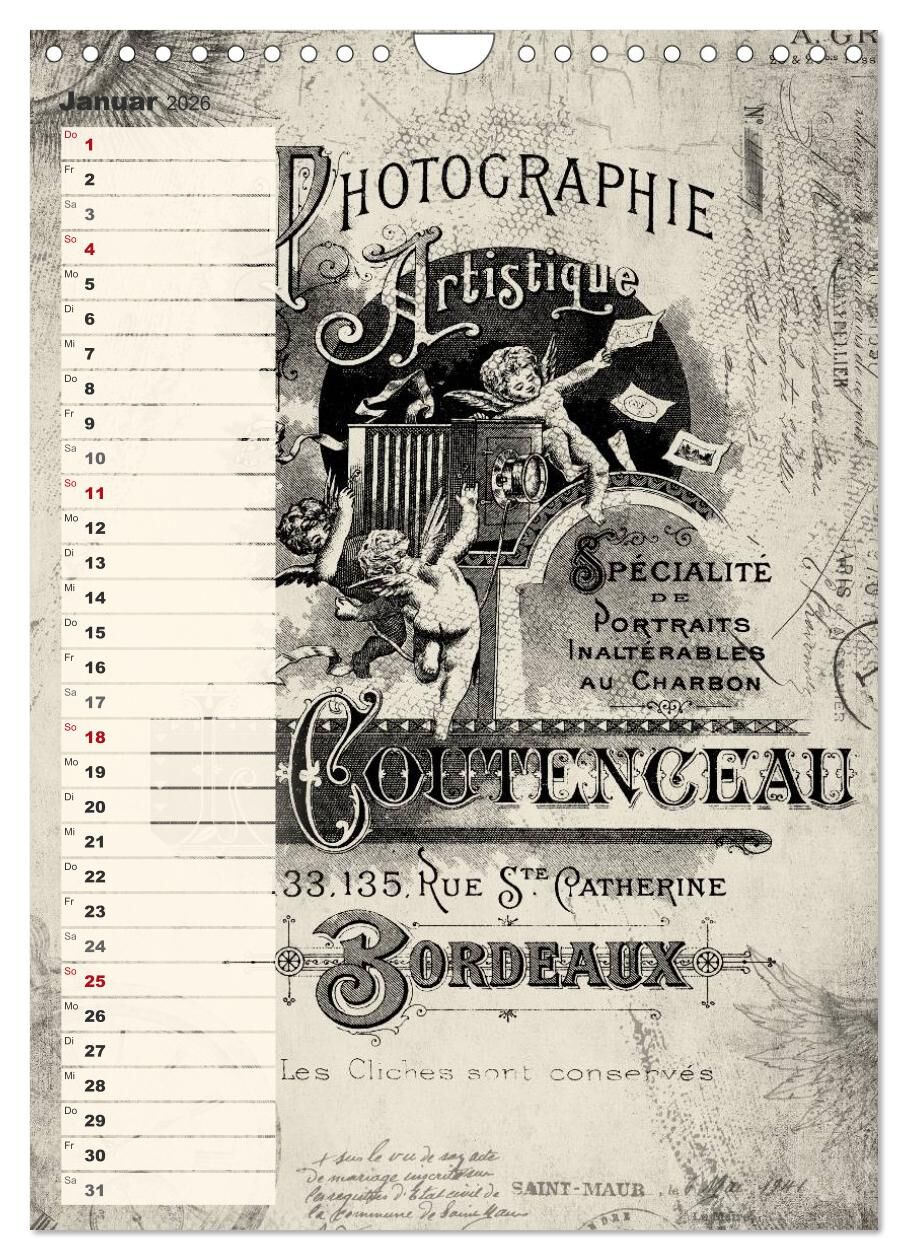 A. GR
Januar 2026
Do 1
Fr 2
Sa 3
So 4
Mo 5
Di 6
Mi 7
Do 8
Fr 9
Sa 10
So 11
Mo 12
Di 13
Mi 14
Do 15
Fr 16
Sa 17
So 18
Mo 19
Di 20
Mi 21
Do 22
Fr 23
Sa 24
So 25
Mo 26
Di 27
Mi 28
Do 29
Fr 30
Sa 31
N°
PHOTOGRAPHIE
Artistique
SPÉCIALITÉ
DE
PORTRAITS
INALTÉRABLES
AU CHARBON
COUTENCEAU
33, 135, RUE STE CATHERINE
BORDEAUX
Les Cliches sont conservés
de mariage
la commune de Saint Maur
SAINT-MAUR, le 6 Mai 1941